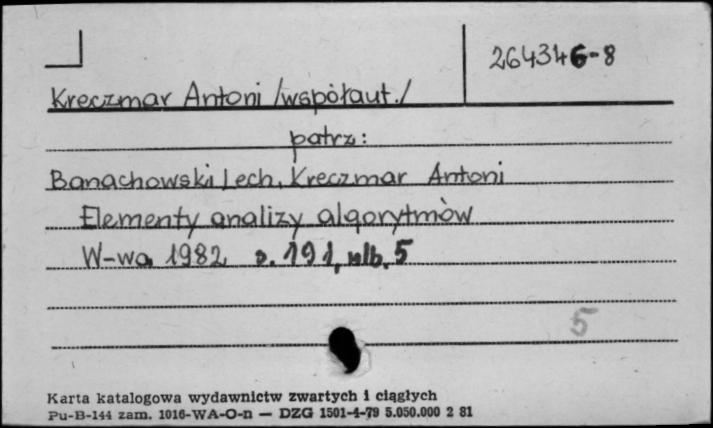 264346-8
Kreczmar Antoni /współaut./
patrz:
Banachowski Lech, Kreczmar Antoni
Elementy analizy algorytmów
W-wa 1982 s. 191, nlb. 5
5
Karta katalogowa wydawnictw zwartych i ciągłych
Pu-B-144 zam. 1016-WA-O-n — DZG 1501-4-79 5.050.000 2 81